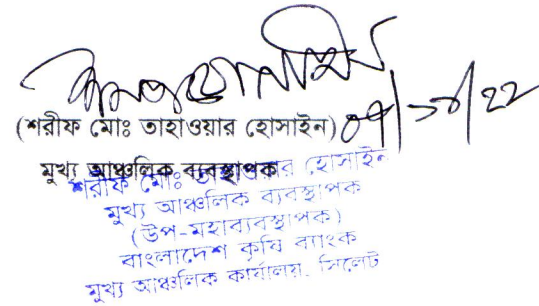 (শরীফ মোঃ তাহাওয়ার হোসাইন)
মুখ্য আঞ্চলিক ব্যবস্থাপক
শরীফ মোঃ তাহাওয়ার হোসাইন
মুখ্য আঞ্চলিক ব্যবস্থাপক
(উপ-মহাব্যবস্থাপক)
বাংলাদেশ কৃষি ব্যাংক
মুখ্য আঞ্চলিক কার্যালয়, সিলেট